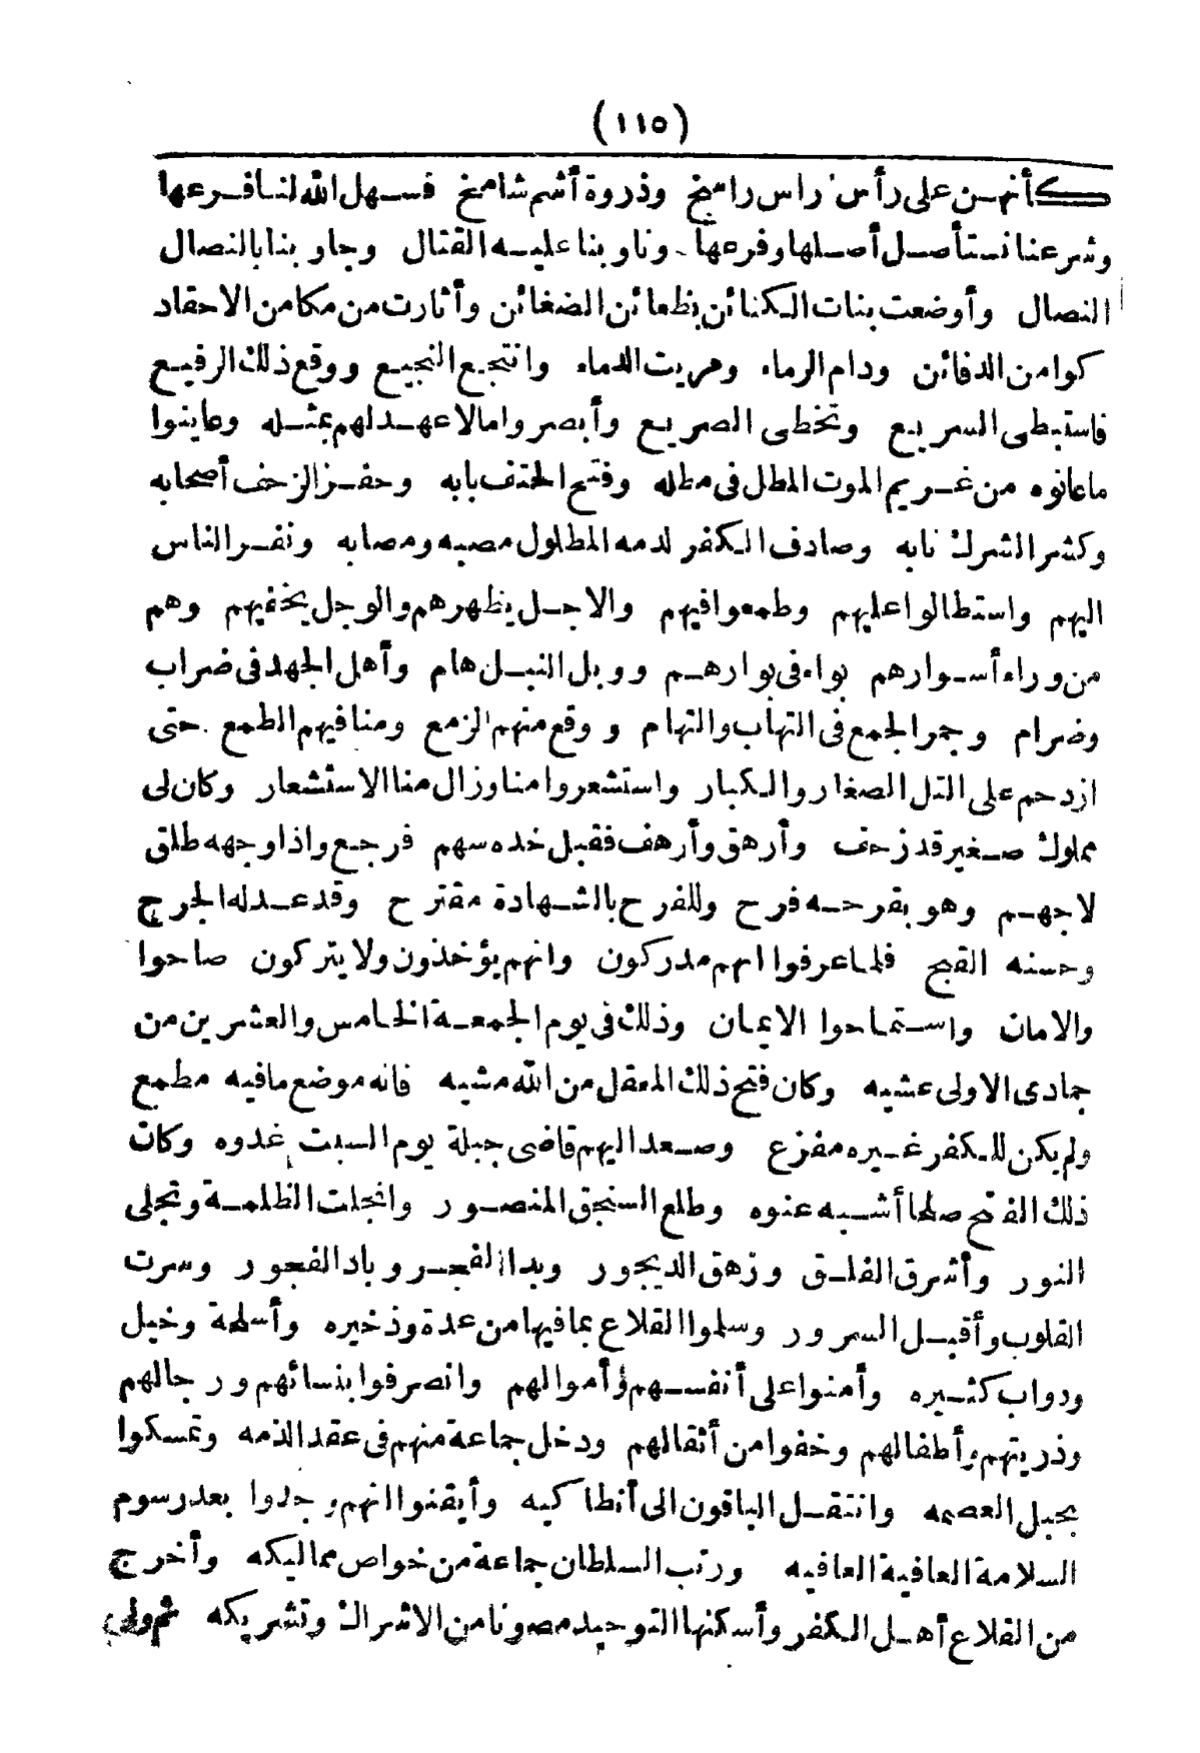 (١١٥)
كأنهن على رأس راس رامخ وذروة أشم شامخ فسهل الله لنا فرعها
وشرعنا نستأصل أصلها وفرعها وناوبنا عليه القتال وجاوبنا بالنصال
النصال وأوضعت بنات الكنائن بظعائن الضغائن وأثارت من مكامن الاحقاد
كوامن الدفائن ودام الرماء وهريت الدماء وانتجع النجيع ووقع ذلك الرفيع
فاستبطى السريع وتخطى الصريع وأبصروا مالا عهد لهم بمثله وعاينوا
ما عانوه من غريم الموت المطل فى مطله وفتح الحتف بابه وحفز الزحف أصحابه
وكشر الشرك نابه وصادف الكفر لدمه المطلول مصبه ومصابه ونفر الناس
اليهم واستطالوا عليهم وطمعوا فيهم والاجل يظهرهم والوجل يخفيهم وهم
من وراء أسوارهم بواء فى بوارهم ووبل النبل هام وأهل الجهد فى ضراب
وضرام وجمر الجمع فى التهاب والتهام ووقع منهم الزمع ومنا فيهم الطمع حتى
ازدحم على التل الصغار والكبار واستشعروا منا وزال منا الاستشعار وكان لى
مملوك صغير قد زحف وأرهق وأرهف فقبل خده سهم فرجع واذا وجهه طلق
لا جهم وهو بقرحه فرح وللفرح بالشهادة مقترح وقد عدله الجرح
وحسنه القبح فلما عرفوا انهم مدركون وانهم يؤخذون ولا يتركون صاحوا
والامان واستماحوا الايمان وذلك فى يوم الجمعة الخامس والعشرين من
جمادى الاولى عشيه وكان فتح ذلك المعقل من الله مشيه فانه موضع ما فيه مطمع
ولم يكن للكفر غيره مفزع وصعد اليهم قاضى جبلة يوم السبت غدوه وكان
ذلك الفتح صلحا أشبه عنوه وطلع السنجق المنصور وانجلت الظلمة وتجلى
النور وأشرق الفلق وزهق الديجور وبدا الفجر وباد الفجور وسرت
القلوب وأقبل السرور وسلموا القلاع بما فيها من عدة وذخيره وأسلحة وخيل
ودواب كثيره وأمنوا على أنفسهم وأموالهم وانصرفوا بنسائهم ورجالهم
وذريتهم وأطفالهم وخفوا من أثقالهم ودخل جماعة منهم فى عقد الذمه وتمسكوا
بحبل العصمه وانتقل الباقون الى أنطاكيه وأيقنوا انهم وجدوا بعد رسوم
السلامة العافية العافيه ورتب السلطان جماعة من خواص مماليكه وأخرج
من القلاع أهل الكفر وأسكنها التوحيد مصونا من الاشراك وتشريكه ثم ولى